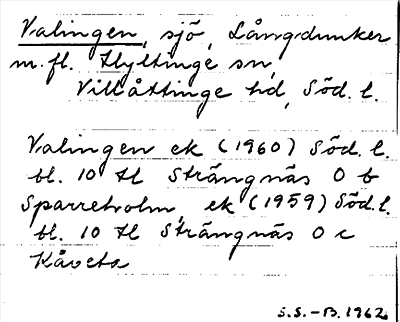 Valingen, sjö, Långdunker
m.fl. Hyltinge sn,
Villåttinge hd, Söd. l.
Valingen ek (1960) Söd. l.
bl. 10 H Strängnäs O b
Sparreholm, ek (1959) Söd. l.
bl. 10 H Strängnäs O c
Kåveta
S.S.-B. 1962